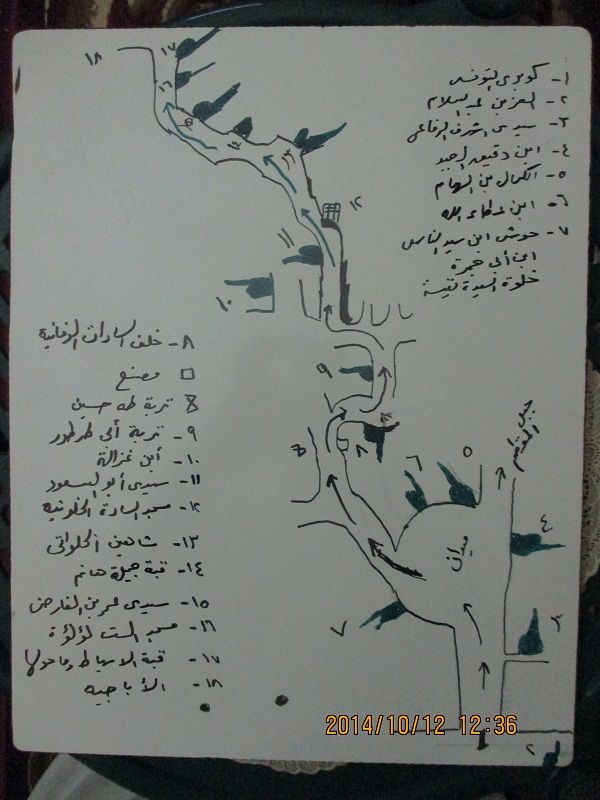 ١- كوبري التونسى
٢- العز بن عبد السلام
٣- سيدى اشرف الرفاعى
٤- ابن دقيق العيد
٥- الكمال بن الهمام
٦- ابن عطاء الله
٧- حوش ابن سيد الناس
ابن أبى جمرة
خلوة السيدة نفيسة
جبل المقطم
ميدان
٨- خلف السادات الوفائية
مصنع
تربة طه حسين
٩- تربة أبى طرطور
١٠- ابن غزالة
١١- سيدى أبو السعود
١٢- مسجد السادة الخلوتية
١٣- شاهين الخلواتى
١٤- قبة جميلة هانم
١٥- سيدى عمر بن الفارض
١٦- مسجد الست لؤلؤة
١٧- قبة الاسباط وماحولها
١٨- الأباجيه
١٨
١٧
١٦
١٥
١٤
١٣
١٢
١١
١٠
٩
٨
٧
٦
٥
٤
٣
٢
2014/10/12 12:36